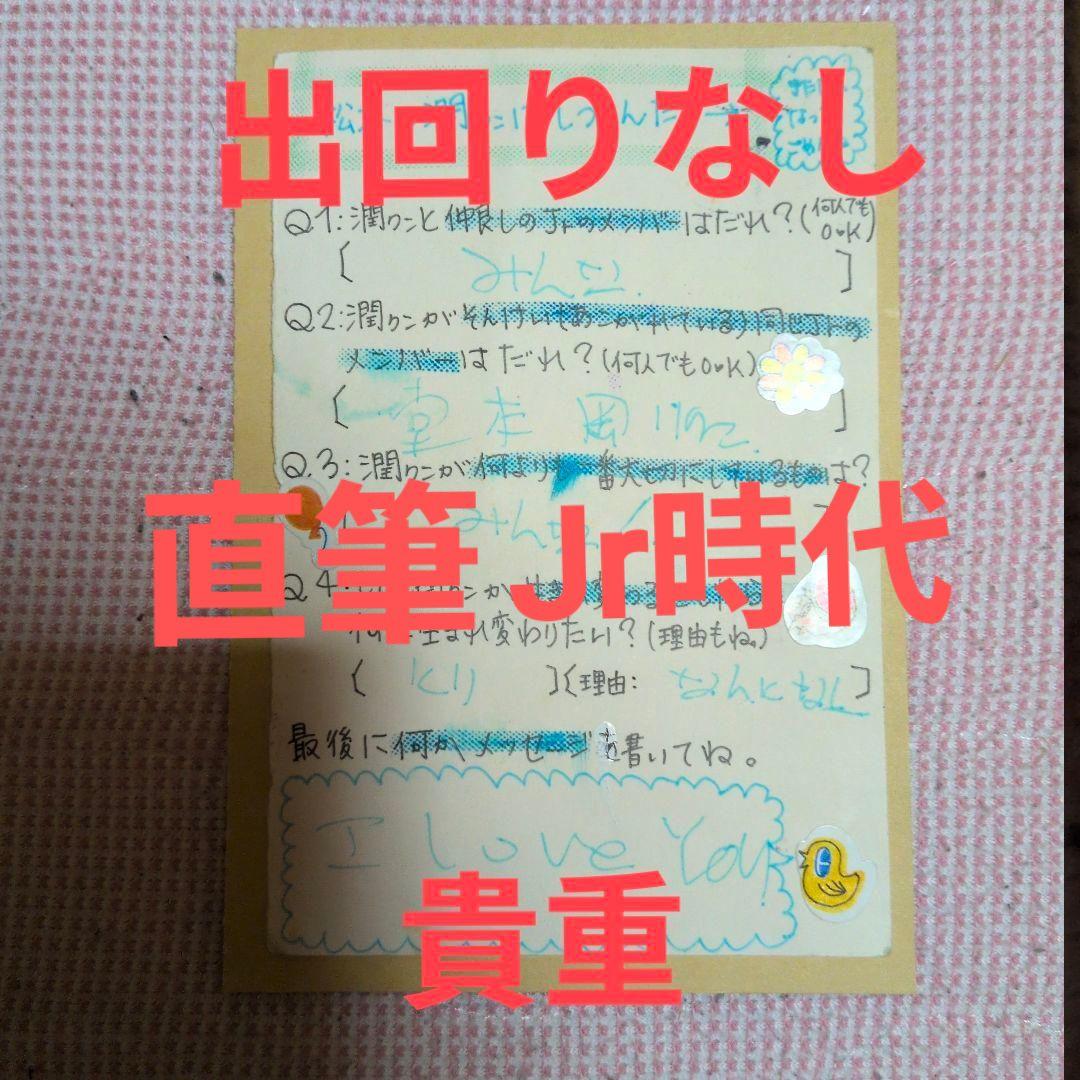 出回りなし
Q.1:潤クンと仲良しのJrのメンバーはだれ?(何人でもO♥K)
[みんな.]
Q.2:潤クンがそんけい(あこがれている)同じJrの
メンバーはだれ?(何人でもO♥K)
[堂本 ]
Q.3:潤クンが何よりも一番大
は?
みんな
直筆 Jr時代
Q.4
生まれ変わりたい?(理由もね。)
[とり][理由:なんとなく]
最後に何かメッセージを書いてね。
I Love You
貴重